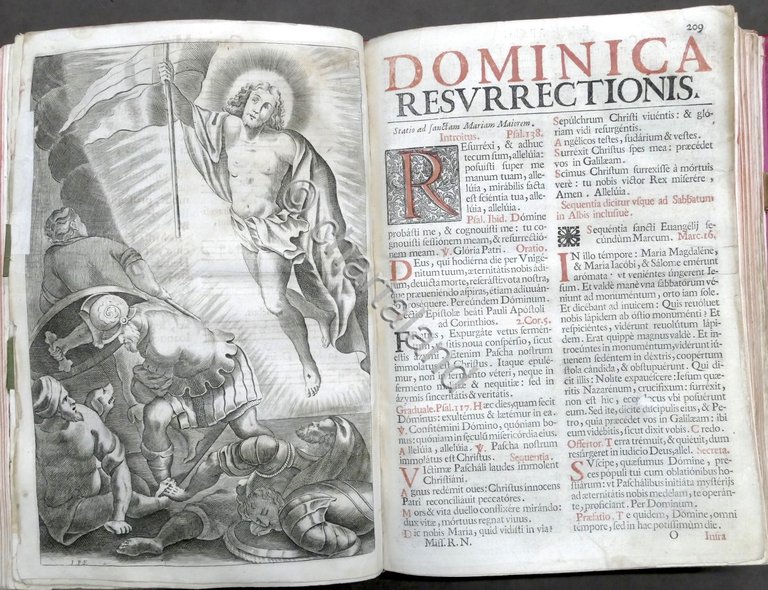 209
DOMINICA
RESVRRECTIONIS.
Statio ad sanctam Mariam Maiorem.
Introitus. Psal.138.
REsurréxi, & adhuc
tecum sum, allelúia:
posuisti super me
manum tuam, alle-
lúia, mirábilis facta
est sciéntia tua, alle-
lúia, allelúia.
Psal. Ibid. Dómine
probásti me, & cognouísti me: tu co-
gnouísti sessiónem meam, & resurrectió-
nem meam. V. Glória Patri. Oratio.
DEus, qui hodiérna die per Vnigé-
nitum tuum, æternitátis nobis ádi-
tum, deuícta morte, reserásti: vota nostra,
quæ præueniéndo aspíras, étiam adiuuán-
do proséquere. Per eúndem Dóminum.
Léctio Epístolæ beáti Pauli Apóstoli
ad Corínthios. 2.Cor.5.
Fratres, Expurgáte vetus fermén-
tum, sitis noua conspérsio, sicut
estis Etenim Pascha nostrum
immolátus Christus. Itaque epulé-
mur, non in ferménto véteri, neque in
ferménto & nequítiæ: sed in
ázymis sinceritátis & veritátis.
Graduale. Psal.117. Hæc dies, quam fecit
Dóminus: exultémus & lætémur in ea.
V. Confitémini Dómino, quóniam bo-
nus: quóniam in sǽculũ misericórdia eius.
Allelúia, allelúia. V. Pascha nostrum
immolátus est Christus. Sequentia.
VIctimæ Pascháli laudes ímmolent
Christiáni.
Agnus redémit oues: Christus ínnocens
Patri reconciliáuit peccatóres.
Mors & vita duéllo conflixére mirándo:
dux vitæ, mórtuus regnat viuus.
Dic nobis María, quid vidísti in via?
Miss. R. N.
Sepúlchrum Christi viuéntis: & gló-
riam vidi resurgéntis.
Angélicos testes, sudárium & vestes.
Surréxit Christus spes mea: præcédet
vos in Galilǽam.
Scimus Christum surrexísse à mórtuis
verè: tu nobis victor Rex miserére,
Amen. Allelúia.
Sequentia dicitur vsque ad Sabbatum
in Albis inclusiuè.
Sequéntia sancti Euangélij se-
cúndùm Marcum. Marc.16.
IN illo témpore: María Magdaléne,
& María Iacóbi, & Sálome emérunt
arómata: vt veniéntes úngerent Ie-
sum. Et valdè manè vna sabbatórum vé-
niunt ad monuméntum, orto iam sole.
Et dicébant ad ínuicem: Quis reuóluet
nobis lápidem ab óstio monuménti? Et
respiciéntes, vidérunt reuolútum lápi-
dem. Erat quippè magnus valdè. Et in-
troeúntes in monuméntum, vidérunt iú-
uenem sedéntem in dextris, coopértum
stola cándida, & obstupuérunt. Qui di-
cit illis: Nolíte expauéscere: Iesum quæ-
ritis Nazarénum, crucifíxum: surréxit,
non est hic, ecce locus vbi posuérunt
eum. Sed ite, dícite discípulis eius, & Pe-
tro, quia præcédet vos in Galilǽam: ibi
eum vidébitis, sicut dixit vobis. Credo.
Offertor. Terra trémuit, & quiéuit, dum
resúrgeret in iudício Deus, allel. Secreta.
SVscipe, quæsumus Dómine, pre-
ces pópuli tui cum oblatiónibus ho-
stiárum: vt Paschálibus initiáta mystérijs
ad æternitátis nobis medélam, te operán-
te, profíciant. Per Dóminum.
Præfatio. Te quidem, Dómine, omni
témpore, sed in hac potíssimùm die.
O Infra